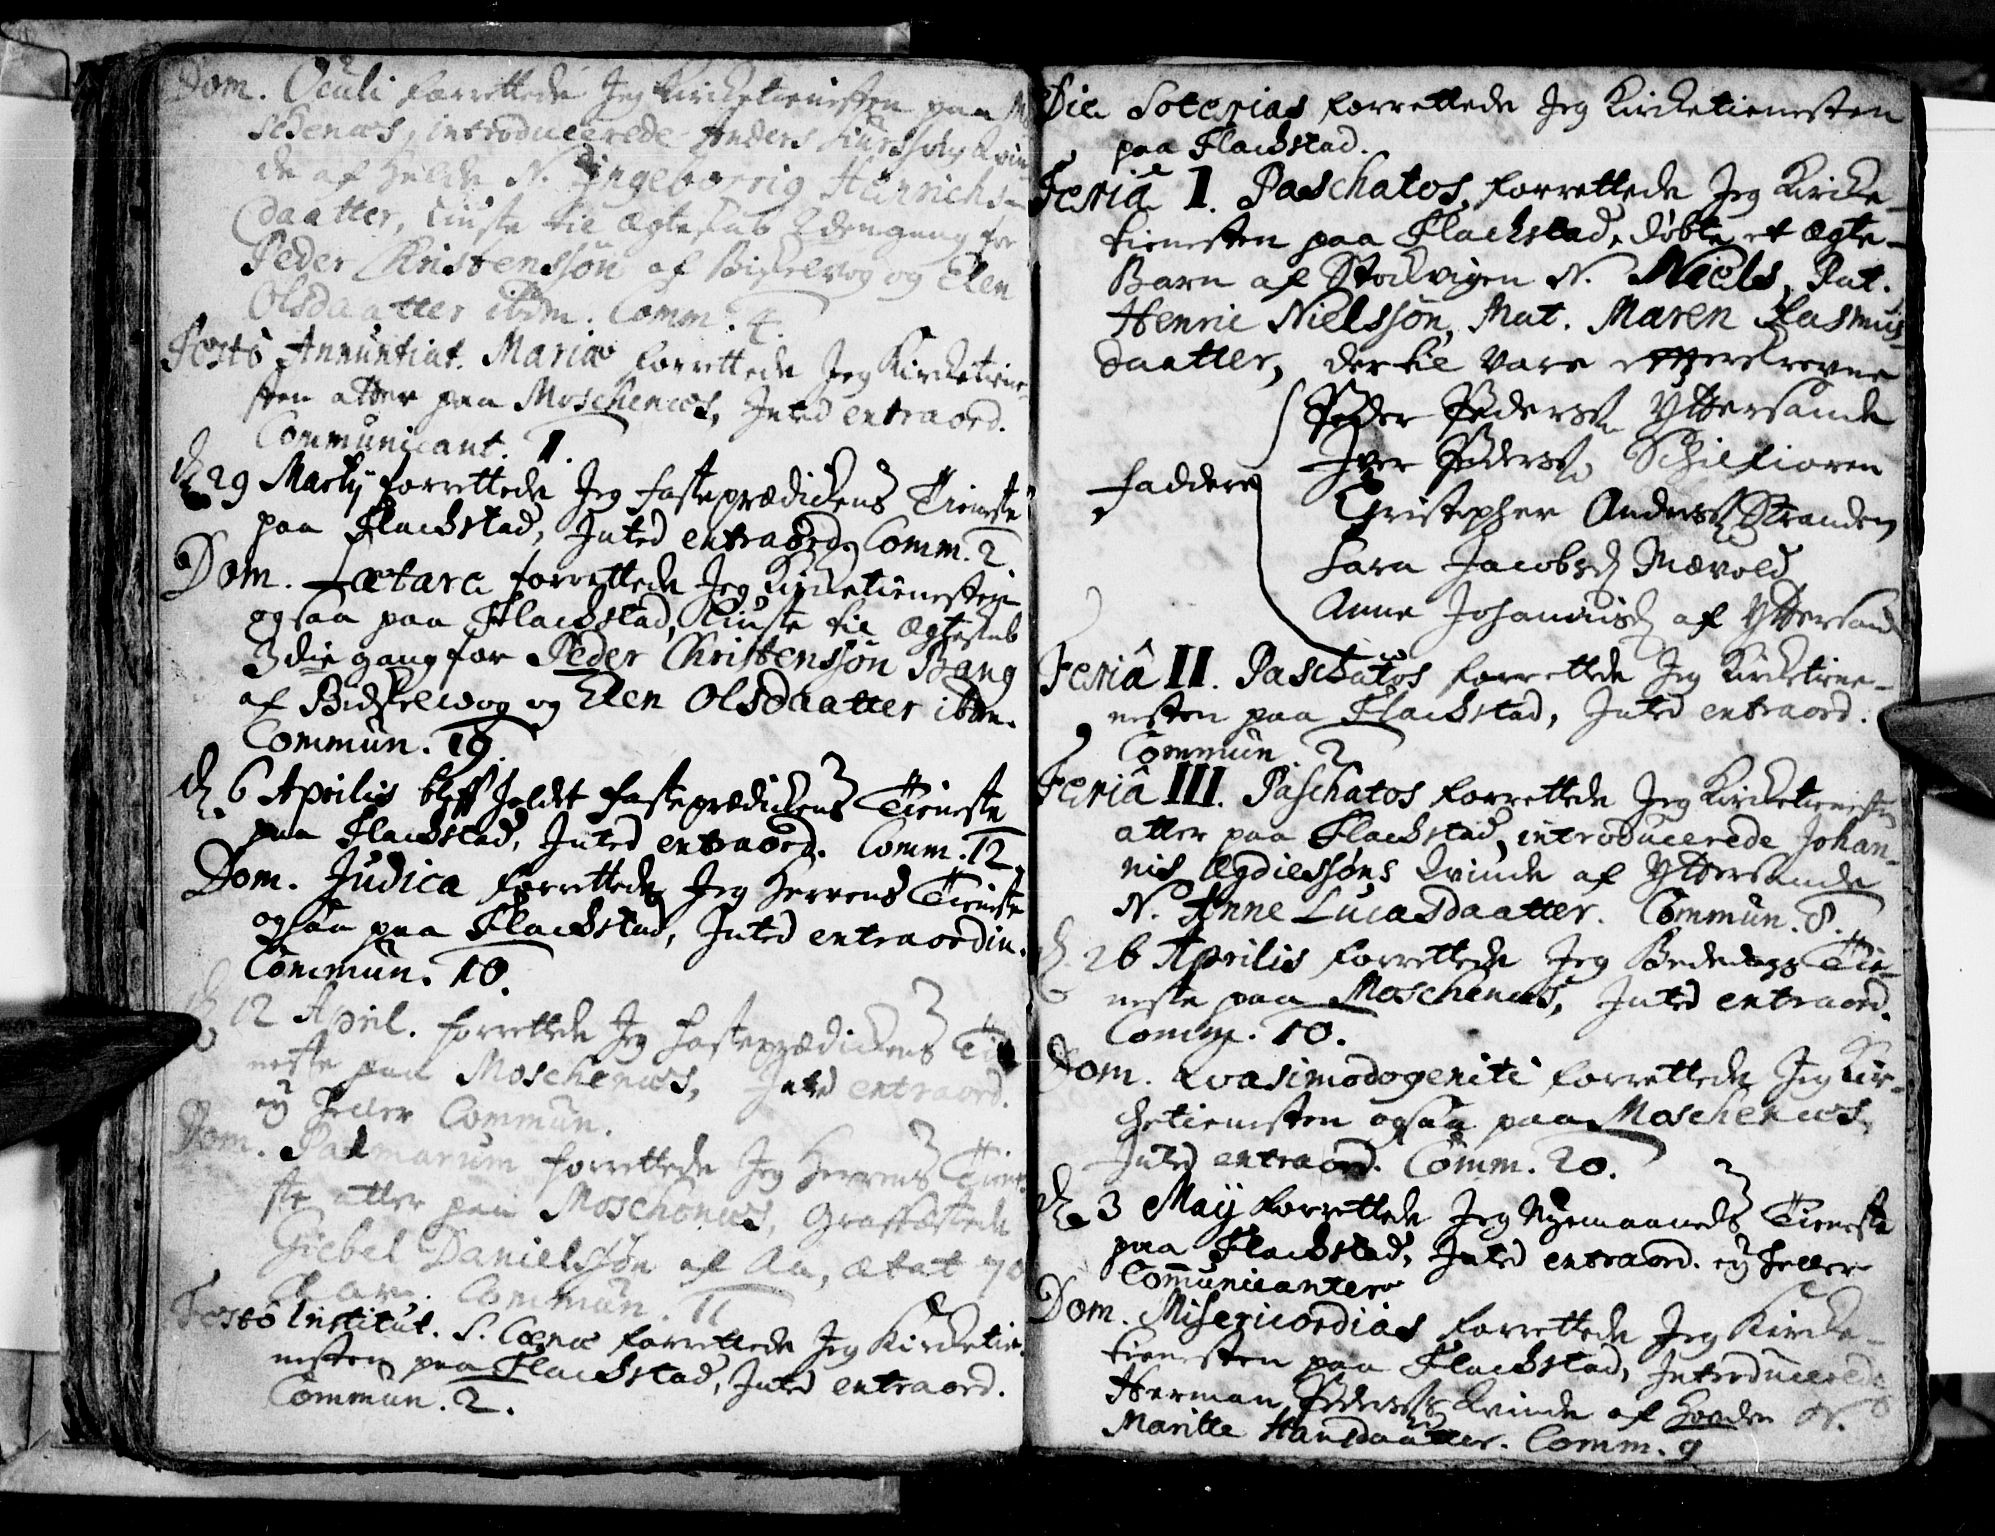 Dom. Oculi forrettede Jeg Kircketienesten paa
Schenæs, introducerede Anders Kvin
de af N. Ingeborrig Hinrichs-
daatter, liuste til Ægteskab 2den gang for
Peder Christenssøn af og Elen
Olsdaatter ibdm. Comm. 4.
Festo Annuntiat. Mariæ forrettede Jeg Kirketiene-
sten atter paa Moschenæs, Inted extraord.
Communicant. 1.
d. 29 Martij forrettede Jeg Fasteprædickens Tieneste
paa Flackstad, Inted extraord. Comm. 2.
Dom. Lætare forrettede Jeg Kircketienesten
ogsaa paa Flackstad, liuste til Ægteskab
3die gang for Peder Christenssøn Bang
af og Elen Olsdaatter ibdm.
Commun. 19.
d. 6 Aprilis bleff holdet Fasteprædickens Tieneste
paa Flackstad, Inted extraord. Comm. 12.
Dom. Judica forrettede Jeg Herrens Tieneste
ogsaa paa Flackstad, Inted extraordin.
Commun. 10.
d. 12 April. forrettede Jeg Fasteprædickens Tie-
neste paa Moschenæs, Inted extraord.
ej heller Commun.
Dom. Palmarum forrettede Jeg Herrens Tiene-
ste atter paa Moschenæs, Graffæstede
Giebel Danielssøn af Aa, ætat 70
Commun. 11
Festo Institut. S. Coenæ forrettede Jeg Kircketie-
nesten paa Flackstad, Inted extraord.
Commun. 2.
Die Soterias forrettede Jeg Kircketienesten
paa Flackstad.
Feriâ I. Paschatos, forrettede Jeg Kircke-
tienesten paa Flackstad, døbte et Ægte-
Barn af Stockvigen N. Niels, Pat.
Henric Nielssøn, Mat. Maren Rasmus-
daatter, dertil vare effterskrevne
Peder Peders. Yttersande
Iver Peders. Schielfioren
Faddere
Christopher Anders. Stranden
Sara Jacobsd. Nævold
Anne Johannisd. af Yttersand
Feriâ II. Paschatos forrettede Jeg Kircketiene-
nesten paa Flackstad, Inted extraord.
Commun. 2
Feriâ III. Paschatos forrettede Jeg Kircketieneste
atter paa Flackstad, introducerede Johan-
nis Ægdiessøns Kvinde af Yttersande
N. Anne Lucasdaatter. Commun. 8.
d. 26 Aprilis forrettede Jeg Bededags Tie-
neste paa Moschenæs, Inted extraord.
Comm. 10.
Dom. Qvasimodogeniti forrettede Jeg Kir-
chetienesten ogsaa paa Moschenæs,
Inted extraord. Comm. 20.
d. 3 Maij forrettede Jeg Nyemaaneds Tieneste
paa Flackstad, Inted extraord. ej heller
Communicantere
Dom. Misericordias forrettede Jeg Kircke-
tienesten paa Flackstad, Introducerede
Herman Peders. Kvinde af N.
Maritte Hansdaatter. Comm. 9